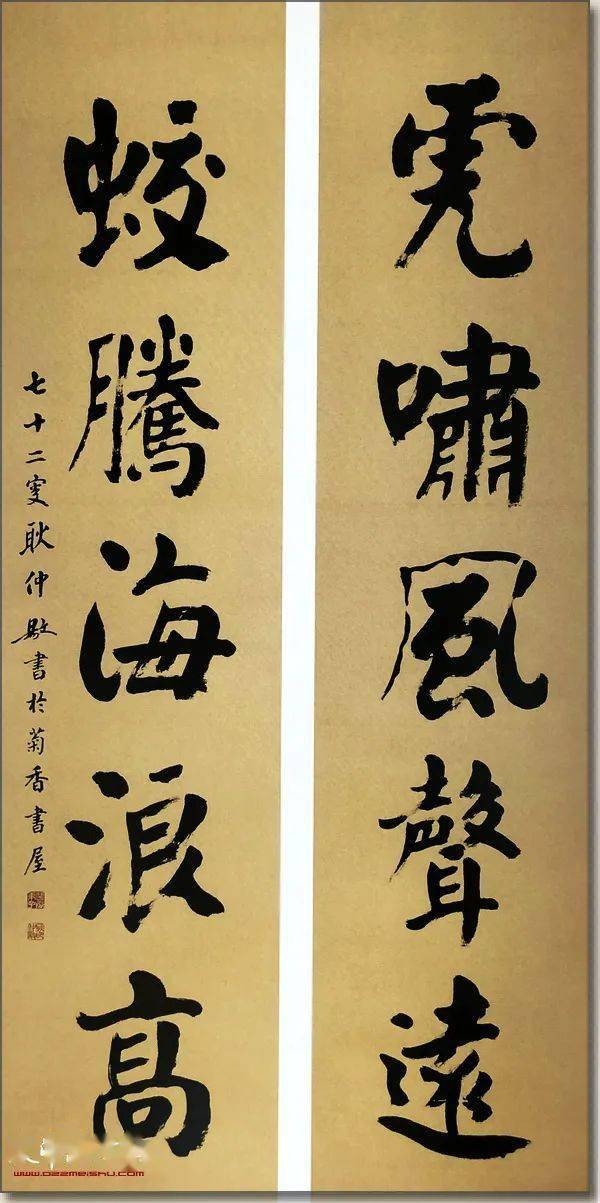 虎嘯風聲遠
蛟騰海浪高
七十二叟耿仲敭書於菊香書屋
www.022meishu.com